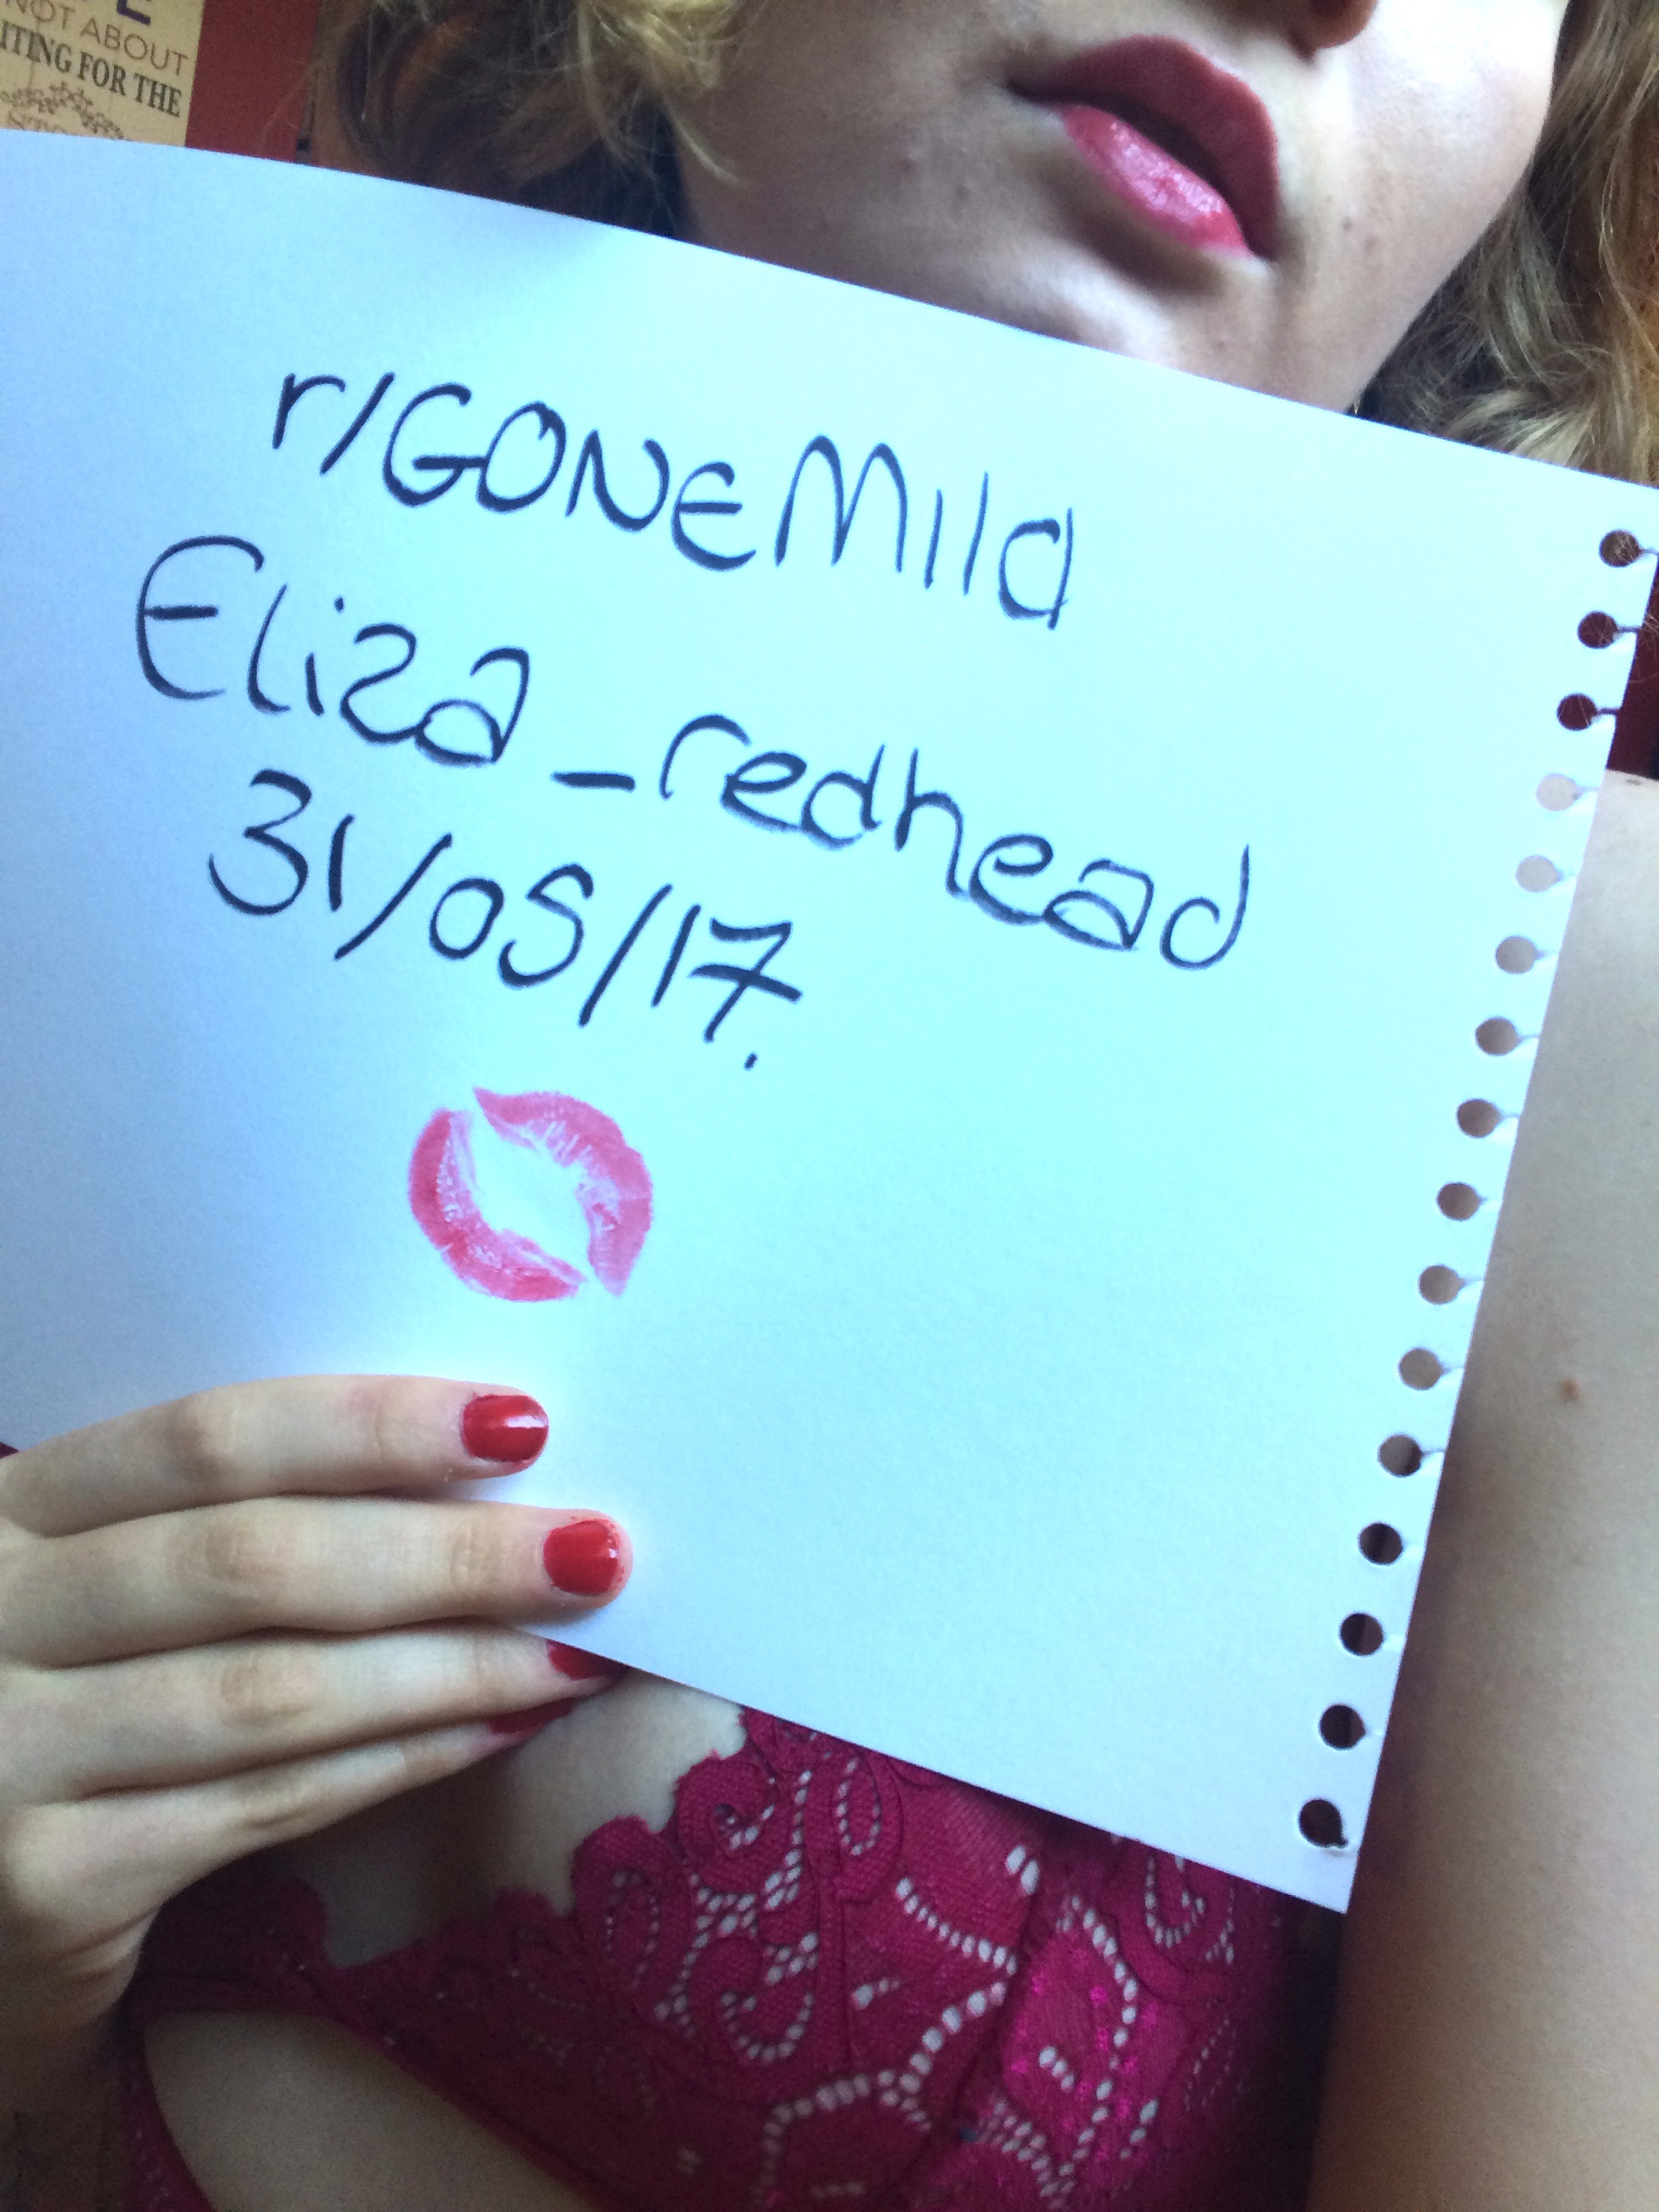 NOT ABOUT
ITING FOR THE
r/GONEMild
Eliza_redhead
31/05/17.